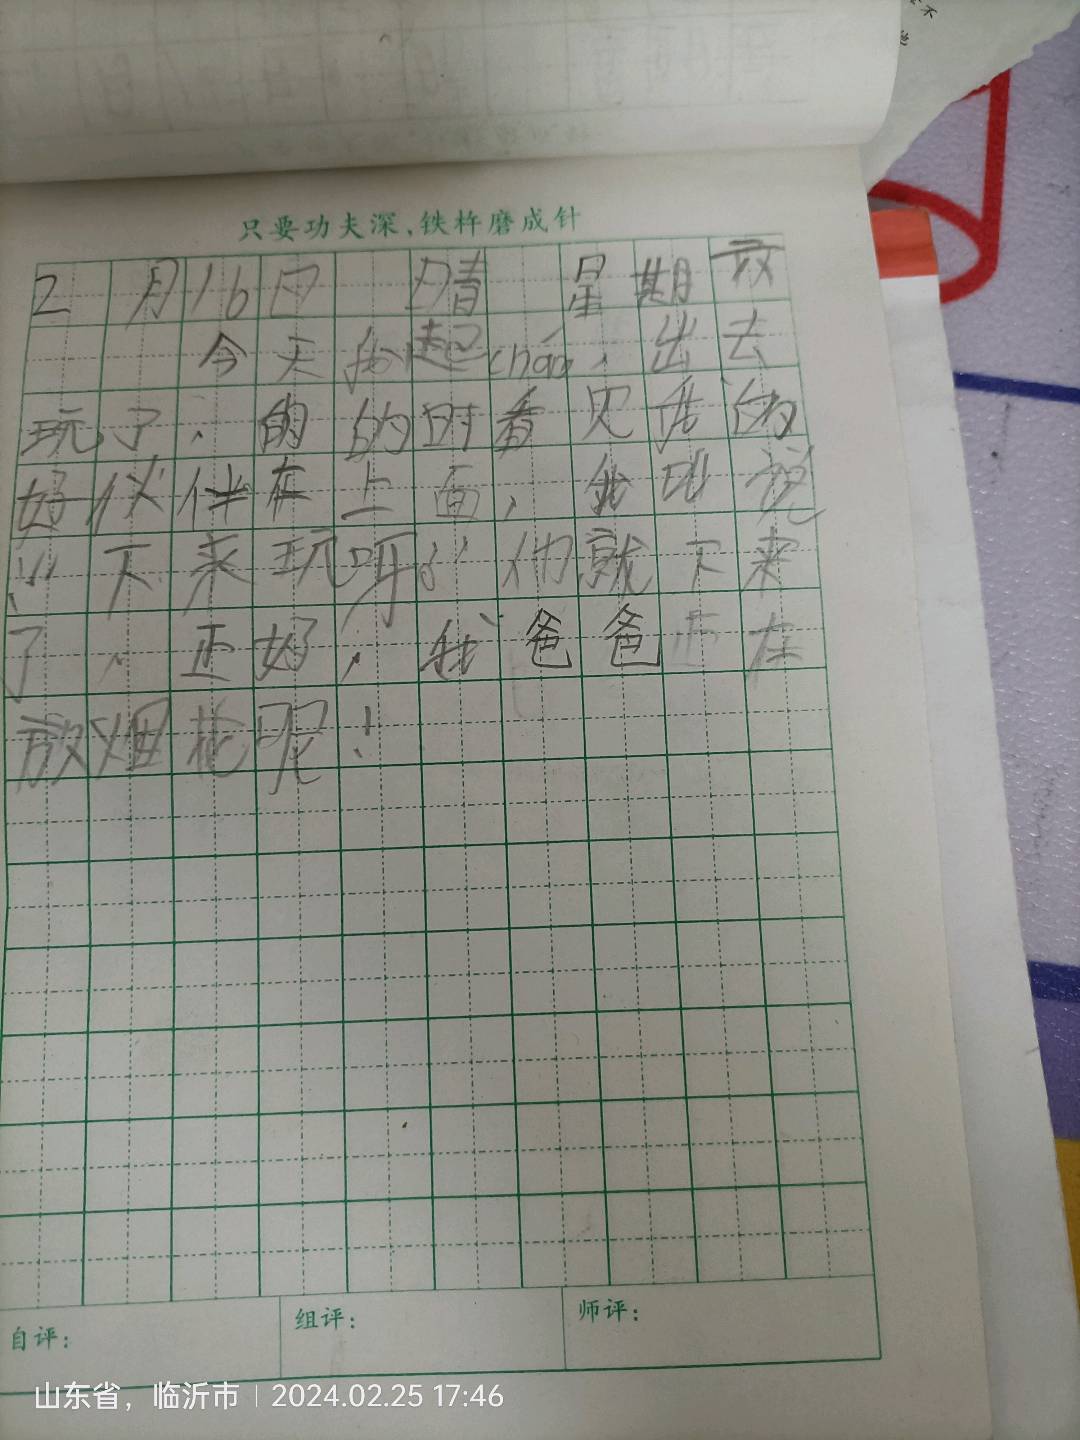 不
只要功夫深,铁杵磨成针
2月16日 晴 星期
今天我起cháng,出去
玩了,的的时看见我的
好伙伴在上面,我叫说
:"下来玩呀"他就下来
了,正好,我爸爸正在
放烟花呢!
自评: 组评: 师评:
山东省,临沂市 | 2024.02.25 17:46